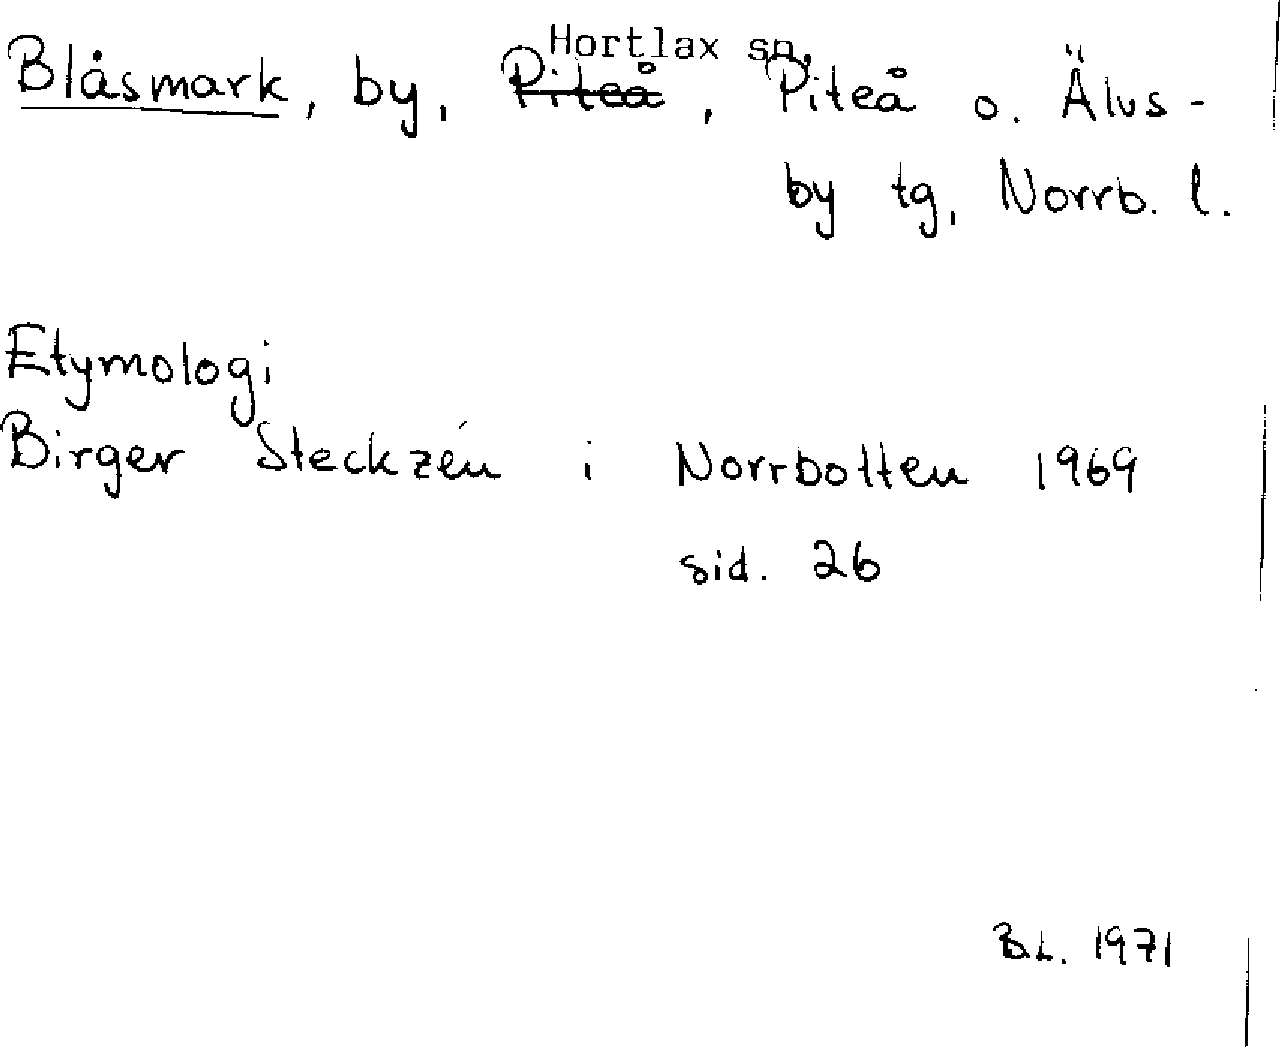 Hortlax sn,
Blåsmark, by, Piteå, Piteå o. Älvs-
by tg, Norrb. l.
Etymologi
Birger Steckzén i Norrbotten 1969
sid. 26
B.L. 1971